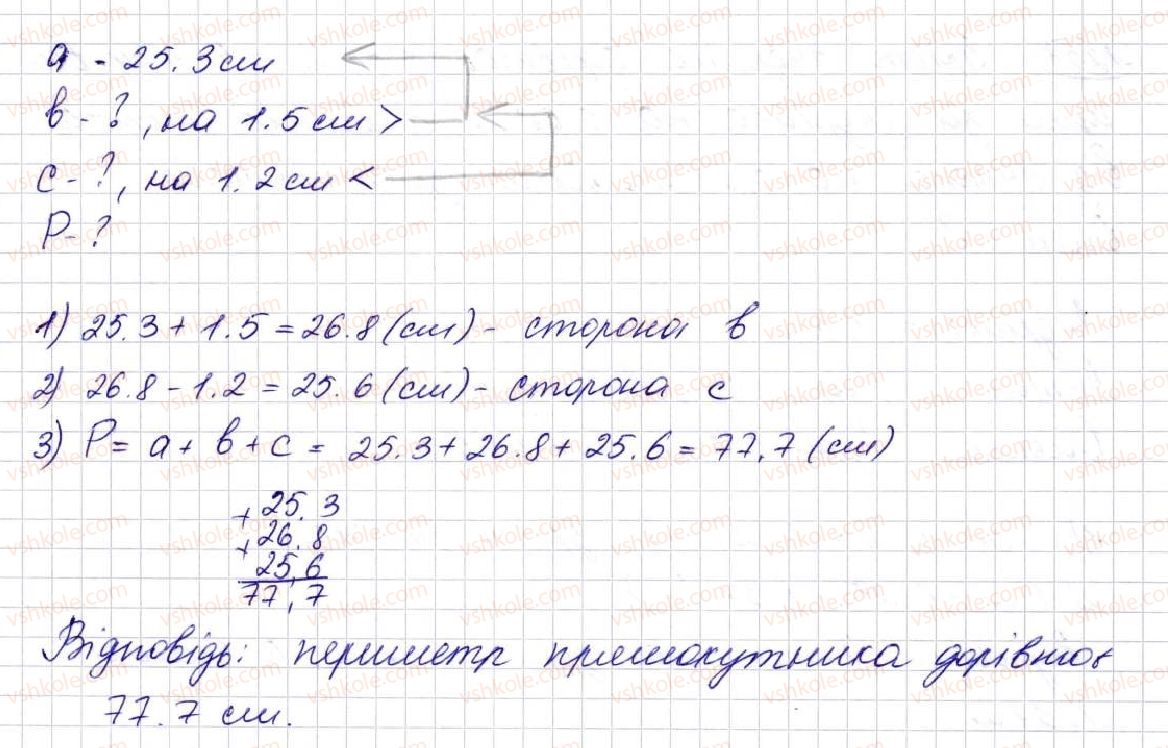 a - 25.3 см
в - ?, на 1.5 см >
с - ?, на 1.2 см <
P - ?
1) 25.3 + 1.5 = 26.8 (см) - сторона в
2) 26.8 - 1.2 = 25.6 (см) - сторона с
3) P = a + в + c = 25.3 + 26.8 + 25.6 = 77,7 (см)
+ 25.3
+ 26.8
25,6
77,7
Відповідь: периметр прямокутника дорівнює
77.7 см.